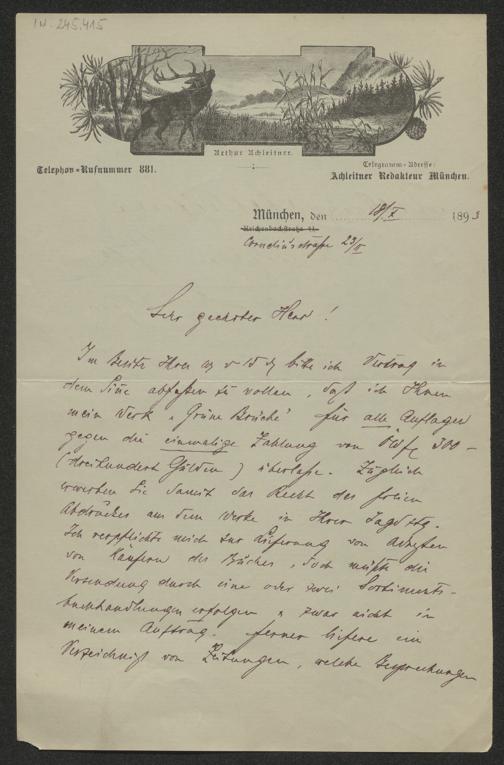 IN-245.415
Arthur Achleitner.
Telephon-Rufnummer 881.
Telegramm-Adresse:
Achleitner Redakteur München.
München, den 18/X 1893
Reichenbachstraße
Corneliusstraße 23/II
Sehr geehrter Herr!
Im Besitz Ihres bitte ich Vertrag in
dem Sinne abfaßen zu wollen, daß ich Ihnen
mein Werk „Grüne Brüche" für alle Auflagen
gegen die einmalige Zahlung von 300 –
(dreihundert Gulden) überlaße. Zugleich
erwerben Sie damit das Recht des freien
Abdruckes aus dem Werke in Ihrer Jagdztg.
Ich verpflichte mich zur Lieferung von Adreßen
von Käufern des Buches, doch müßte die
Versendung durch eine oder zwei Sortiments-
buchhandlungen erfolgen u zwar nicht in
meinem Auftrag. Ferner liefere ein
Verzeichniß von Zeitungen, welche Besprechungen